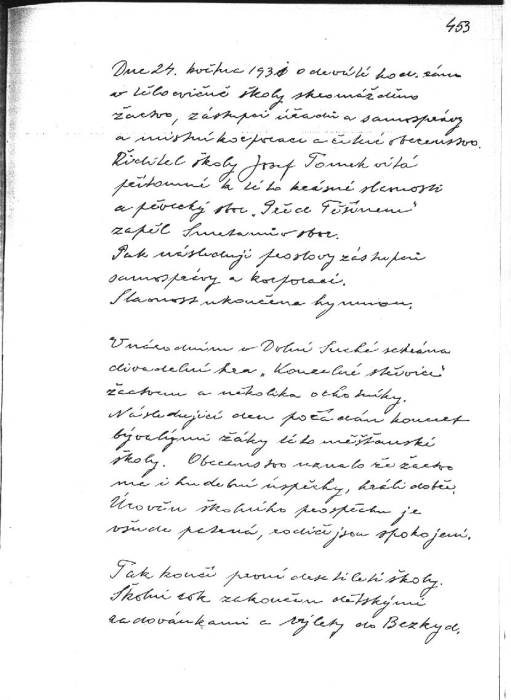 453
Dne 24. května 193 o deváté hod. ráno
v tělocvičně školy shromážděno
žactvo, zástupci úřadů a samosprávy
a místní korporace a četné obecenstvo.
Ředitel školy Josef Tomek vítá
přítomné k této krásné slavnosti
a pěvecký sbor „Před Těšínem"
zapěl Smetanův sbor.
Pak následují proslovy zástupců
samosprávy a korporací.
Slavnost ukončena hymnou.
V národním v Dolní Suché sehrána
divadelní hra „Kouzelné střevíce"
žactvem a několika ochotníky.
Následující den pořádán koncert
bývalými žáky této měšťanské
školy. Obecenstvo uznalo že žactvo
má i hudební úspěchy, hráli dobře.
Úroveň školního prospěchu je
všude patrná, rodiče jsou spokojeni.
Tak končí první desetiletí školy.
Školní rok zakončen dětskými
radovánkami a výlety do Bezkyd.